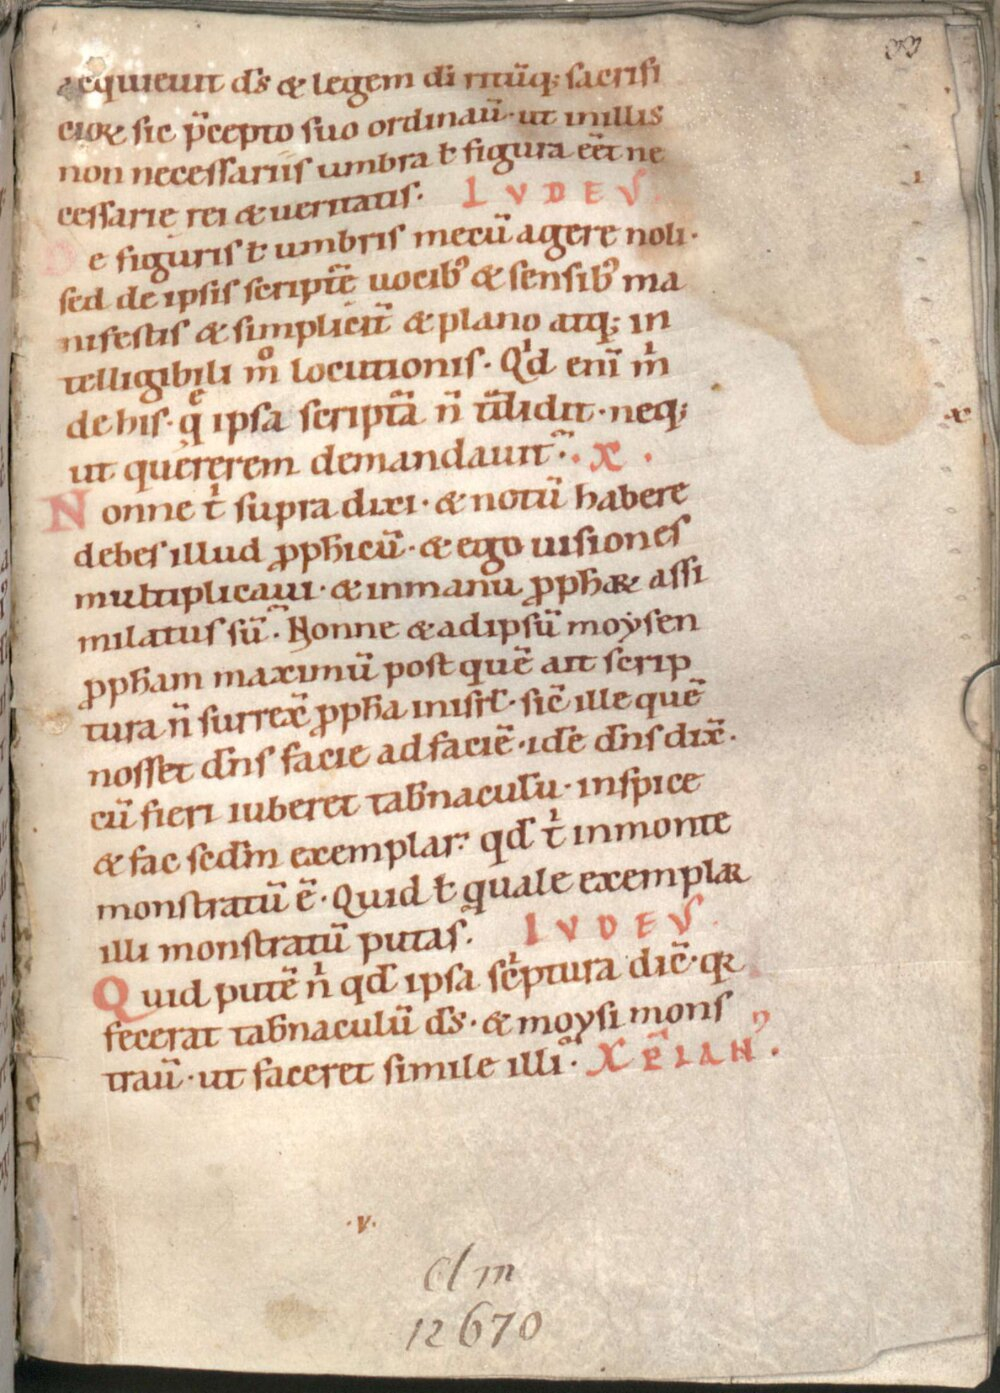 acquieuit d̄s & legem di ritūq; sacrifi
cioꝝ sic p̄cepto suo ordinaū· ut inillis
non necessariis umbra ł figura eēt ne
cessarie rei & ueritatis. IVDEVS.
De figuris ł umbris mecū agere noli·
sed de ipsis scriptē uocib; & sensib; ma
nifestis & simpliciū & plano atq; in
telligibili m̊ locutionis· Qd enī m
de his· q̄ ipsa scriptā n̄ t̄didit· neq;
ut quererem demandauit· x .
Nonne t supra dixi· & notū habere
debes illud ꝓph̄icū· & ego uisiones
multiplicaui· & inmanu ꝓphaꝝ assi
milatus sū· Nonne & adipsū moysen
ꝓpham maximū post quē ait scrip
tura n̄ surrex̄ ꝓpha inisrł· sic̄ ille quē
nosset dn̄s facie ad faciē· idē dn̄s dix̄·
cū fieri iuberet tab̄naculū· inspice
& fac scdm̄ exemplar· qd̄ t inmonte
monstratū ē· Quid ł quale exemplar
illi monstratū putas· IVDEVS.
Quid putē n qd̄ ipsa scptura dic̄· qꝛ
fecerat tab̄naculū d̄s· & moysi mons
traū· ut faceret simile illi· XP̄IANꝰ.
·v·
clm
12670